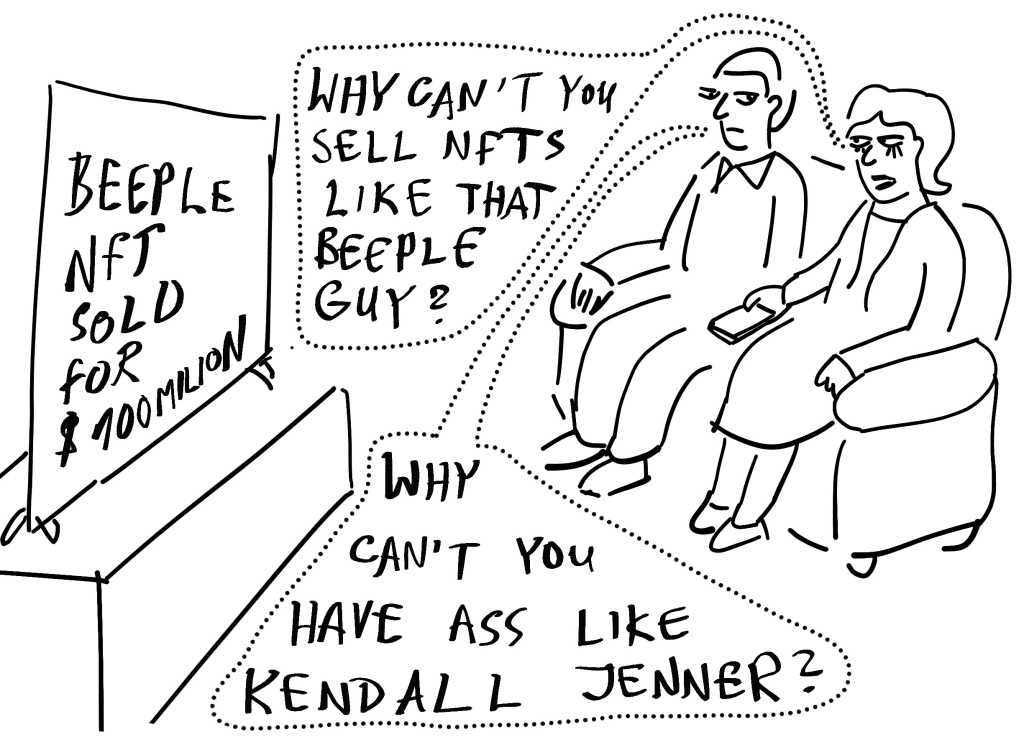 BEEPLE
NFT
SOLD
FOR
$ 100 MILION
WHY CAN'T YOU
SELL NFTS
LIKE THAT
BEEPLE
GUY?
WHY
CAN'T YOU
HAVE ASS LIKE
KENDALL JENNER?